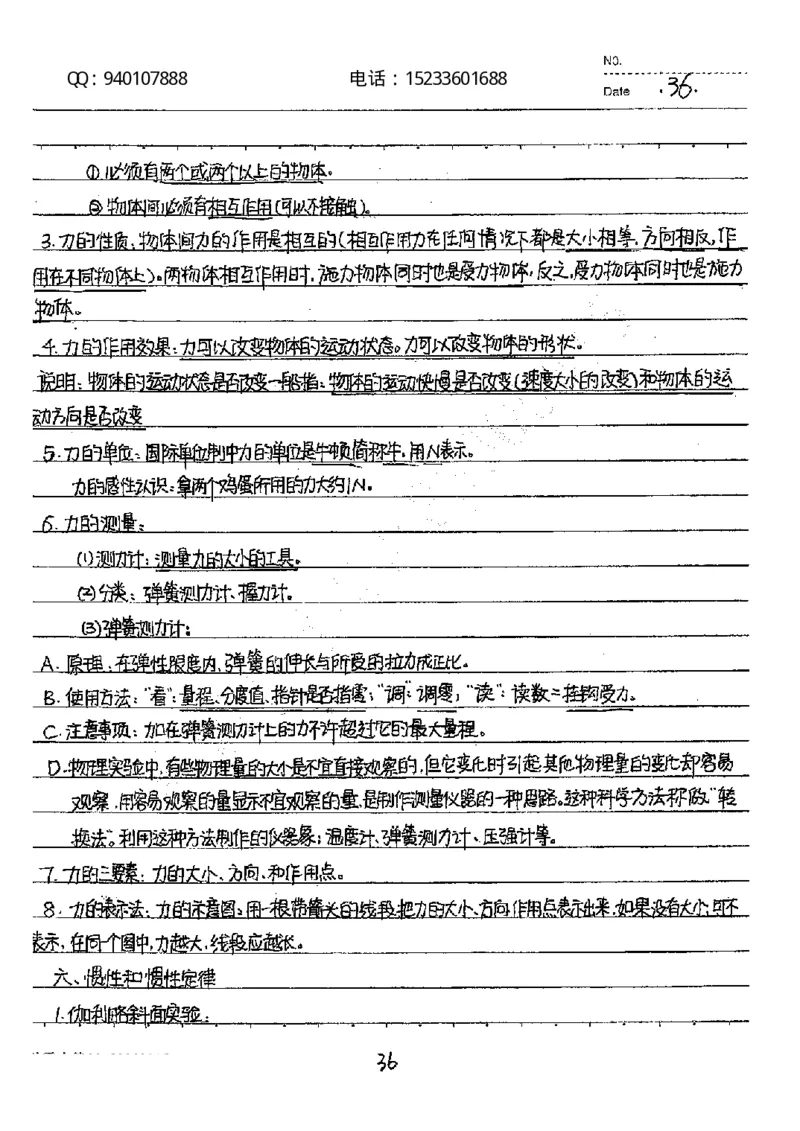 No.
QQ：940107888 电话：15233601688
Date .36.
①必须有两个或两个以上的物体。
②物体间必须有相互作用(可以不接触)。
3.力的性质：物体间力的作用是相互的(相互作用力在任何情况下都是大小相等，方向相反，作
用在不同物体上)。两物体相互作用时，施力物体同时也是受力物体，反之，受力物体同时也是施力
物体。
4.力的作用效果：力可以改变物体的运动状态。力可以改变物体的形状。
说明：物体的运动状态是否改变一般指：物体的运动快慢是否改变(速度大小的改变)和物体的运
动方向是否改变
5.力的单位：国际单位制中力的单位是牛顿简称牛，用N表示。
力的感性认识：拿两个鸡蛋所用的力大约1N。
6.力的测量：
(1)测力计：测量力的大小的工具。
(2)分类：弹簧测力计、握力计。
(3)弹簧测力计：
A.原理：在弹性限度内，弹簧的伸长与所受的拉力成正比。
B.使用方法："看"：量程、分度值、指针是否指零；"调"：调零；"读"：读数=挂钩受力。
C.注意事项：加在弹簧测力计上的力不许超过它的最大量程。
D.物理实验中，有些物理量的大小是不宜直接观察的，但它变化时引起其他物理量的变化却容易
观察，用容易观察的量显示不宜观察的量，是制作测量仪器的一种思路。这种科学方法称做"转
换法"。利用这种方法制作的仪器象：温度计、弹簧测力计、压强计等。
7.力的三要素：力的大小、方向、和作用点。
8.力的表示法：力的示意图：用一根带箭头的线段把力的大小、方向、作用点表示出来，如果没有大小，可不
表示，在同一个图中，力越大，线段应越长。
六、惯性和惯性定律
1.伽利略斜面实验：
36